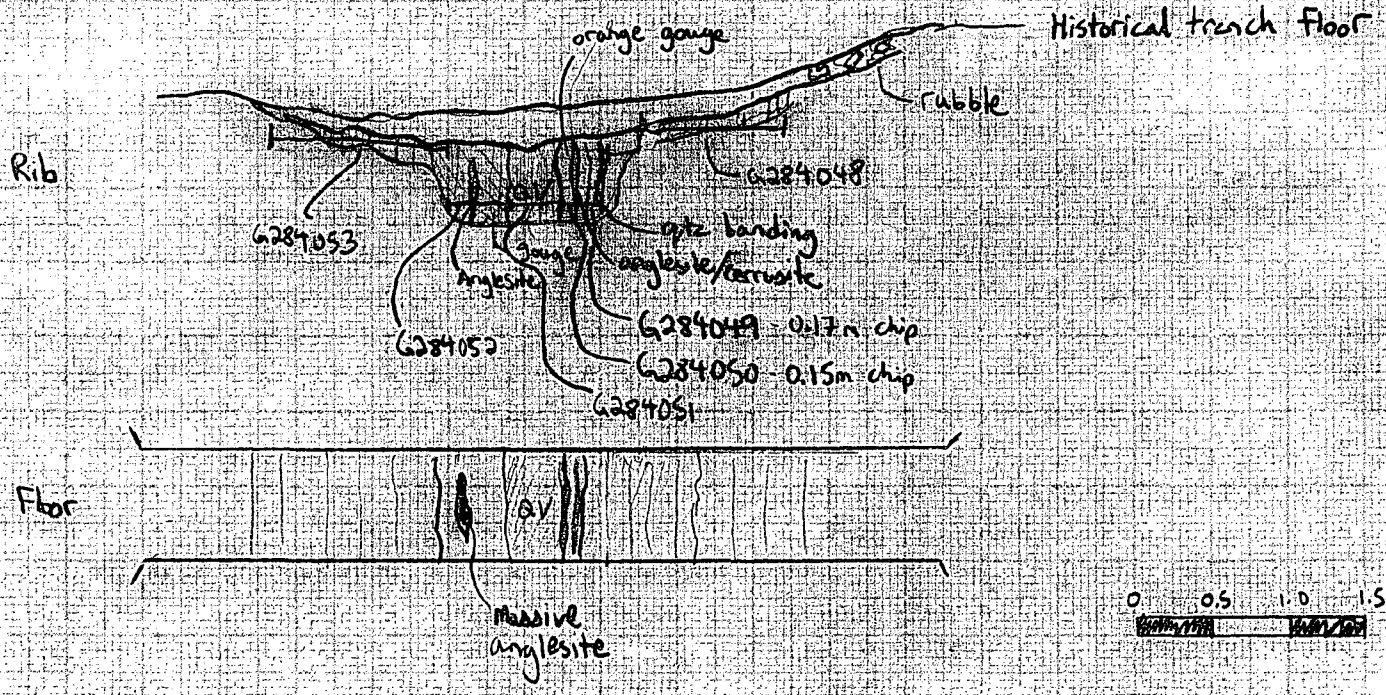 orange gouge
Historical trench Floor
rubble
Rib
G284048
QV
G284053
qtz banding
gouge
anglesite/cerrusite
Anglesite
G284049 - 0.17m chip
G284052
G284050 - 0.15m chip
G284051
Floor
QV
massive
anglesite
0 0.5 1.0 1.5